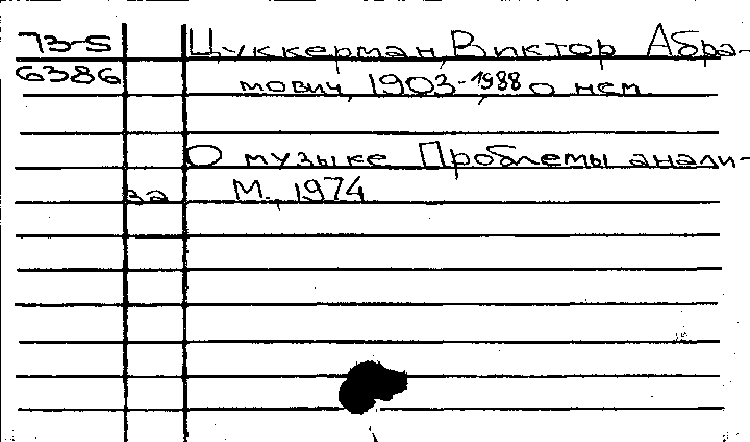 73-5 Цуккерман, Виктор Абра-
6386 мович, 1903-1988 о нем.
О музыке Проблемы анали-
за М., 1974